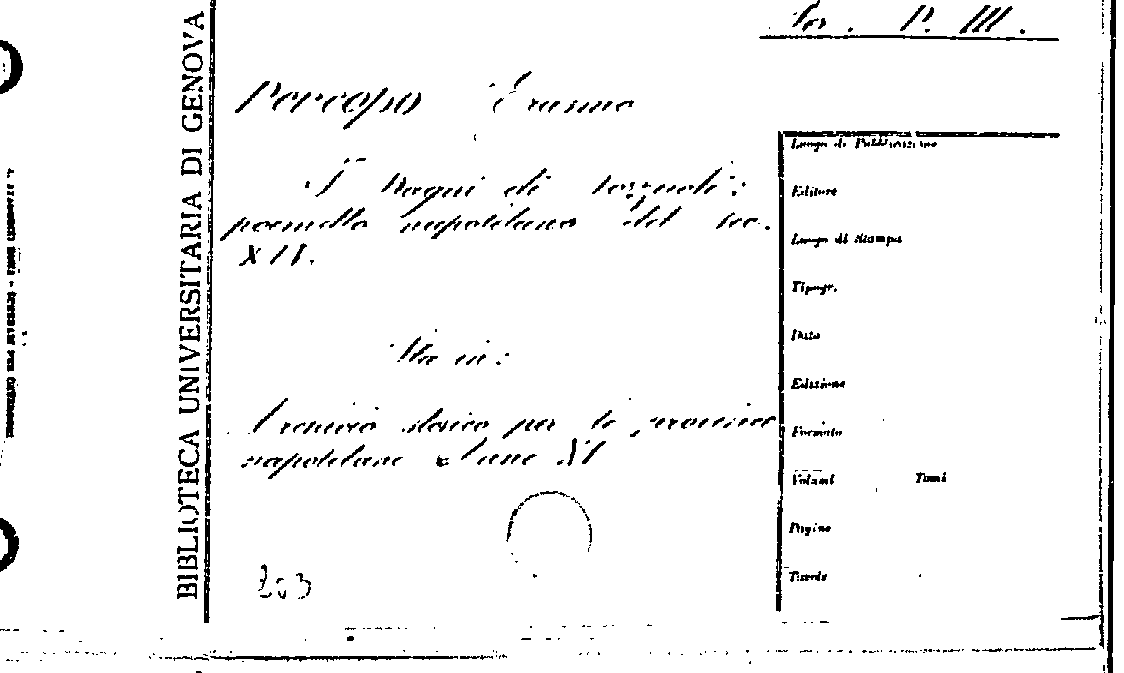 BIBLIOTECA UNIVERSITARIA DI GENOVA
Per. P. III.
Percopo Erasmo
I Bagni di Pozzuoli:
poemetto napolitano del sec.
XIV.
Sta in:
Archivio storico per le province
napolitane Anno XI
203
Luogo di Pubblicazione
Editore
Luogo di Stampa
Tipogr.
Data
Edizione
Formato
Volumi Tomi
Pagine
Tavole